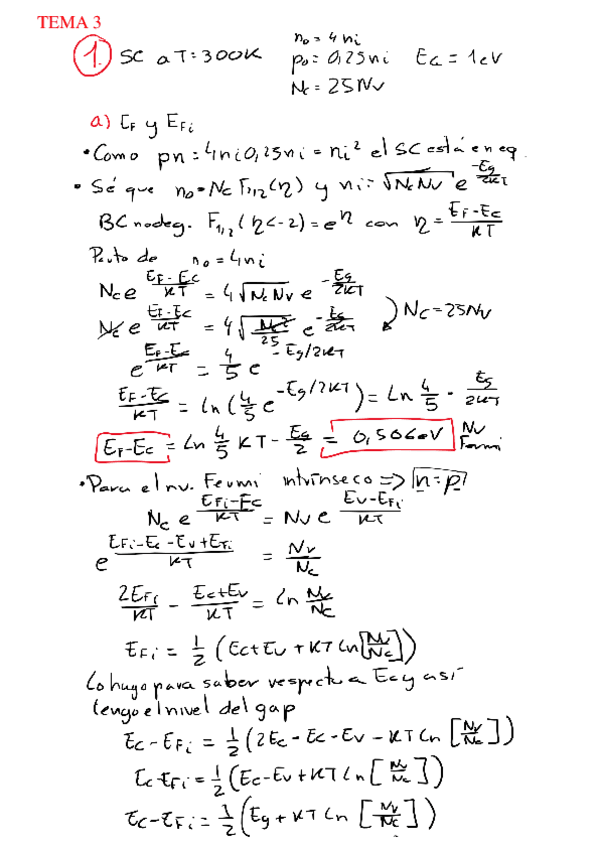 TEMA 3
1. SC a T=300K n₀=4ni
p₀=0,25ni EG=1eV
Nc=25Nv
a) EF y EFi
• Como pn=4ni0,25ni=ni² el SC está en eq.
• Sé que n₀=Nc F1/2(η) y ni=√(NcNv) e^(-Eg/2KT)
BC nodeg. F1/2(η<-2)=e^η con η=(EF-Ec)/KT
Parto de n₀=4ni
Nc e^((EF-Ec)/KT) = 4√(NcNv) e^(-Eg/2KT)
Nc e^((EF-Ec)/KT) = 4√(Nc²/25) e^(-Eg/2KT) Nc=25Nv
e^((EF-Ec)/KT) = 4/5 e^(-Eg/2KT)
(EF-Ec)/KT = ln(4/5 e^(-Eg/2KT)) = Ln 4/5 - Eg/2KT
EF-Ec = Ln 4/5 KT - Eg/2 = 0,506eV Nv Fermi
• Para el nv. Fermi intrínseco => n=p
Nc e^((EFi-Ec)/KT) = Nv e^((Ev-EFi)/KT)
e^((EFi-Ec-Ev+EFi)/KT) = Nv/Nc
2EFi/KT - (Ec+Ev)/KT = ln Nv/Nc
EFi = 1/2 (Ec+Ev+KT Ln[Nv/Nc])
Lo hago para saber respecto a Ec y así
tengo el nivel del gap
Ec-EFi = 1/2 (2Ec-Ec-Ev-KT Ln [Nv/Nc])
Ec-EFi = 1/2 (Ec-Ev+KT Ln [Nv/Nc])
Ec-EFi = 1/2 (Eg+KT Ln [Nv/Nc])